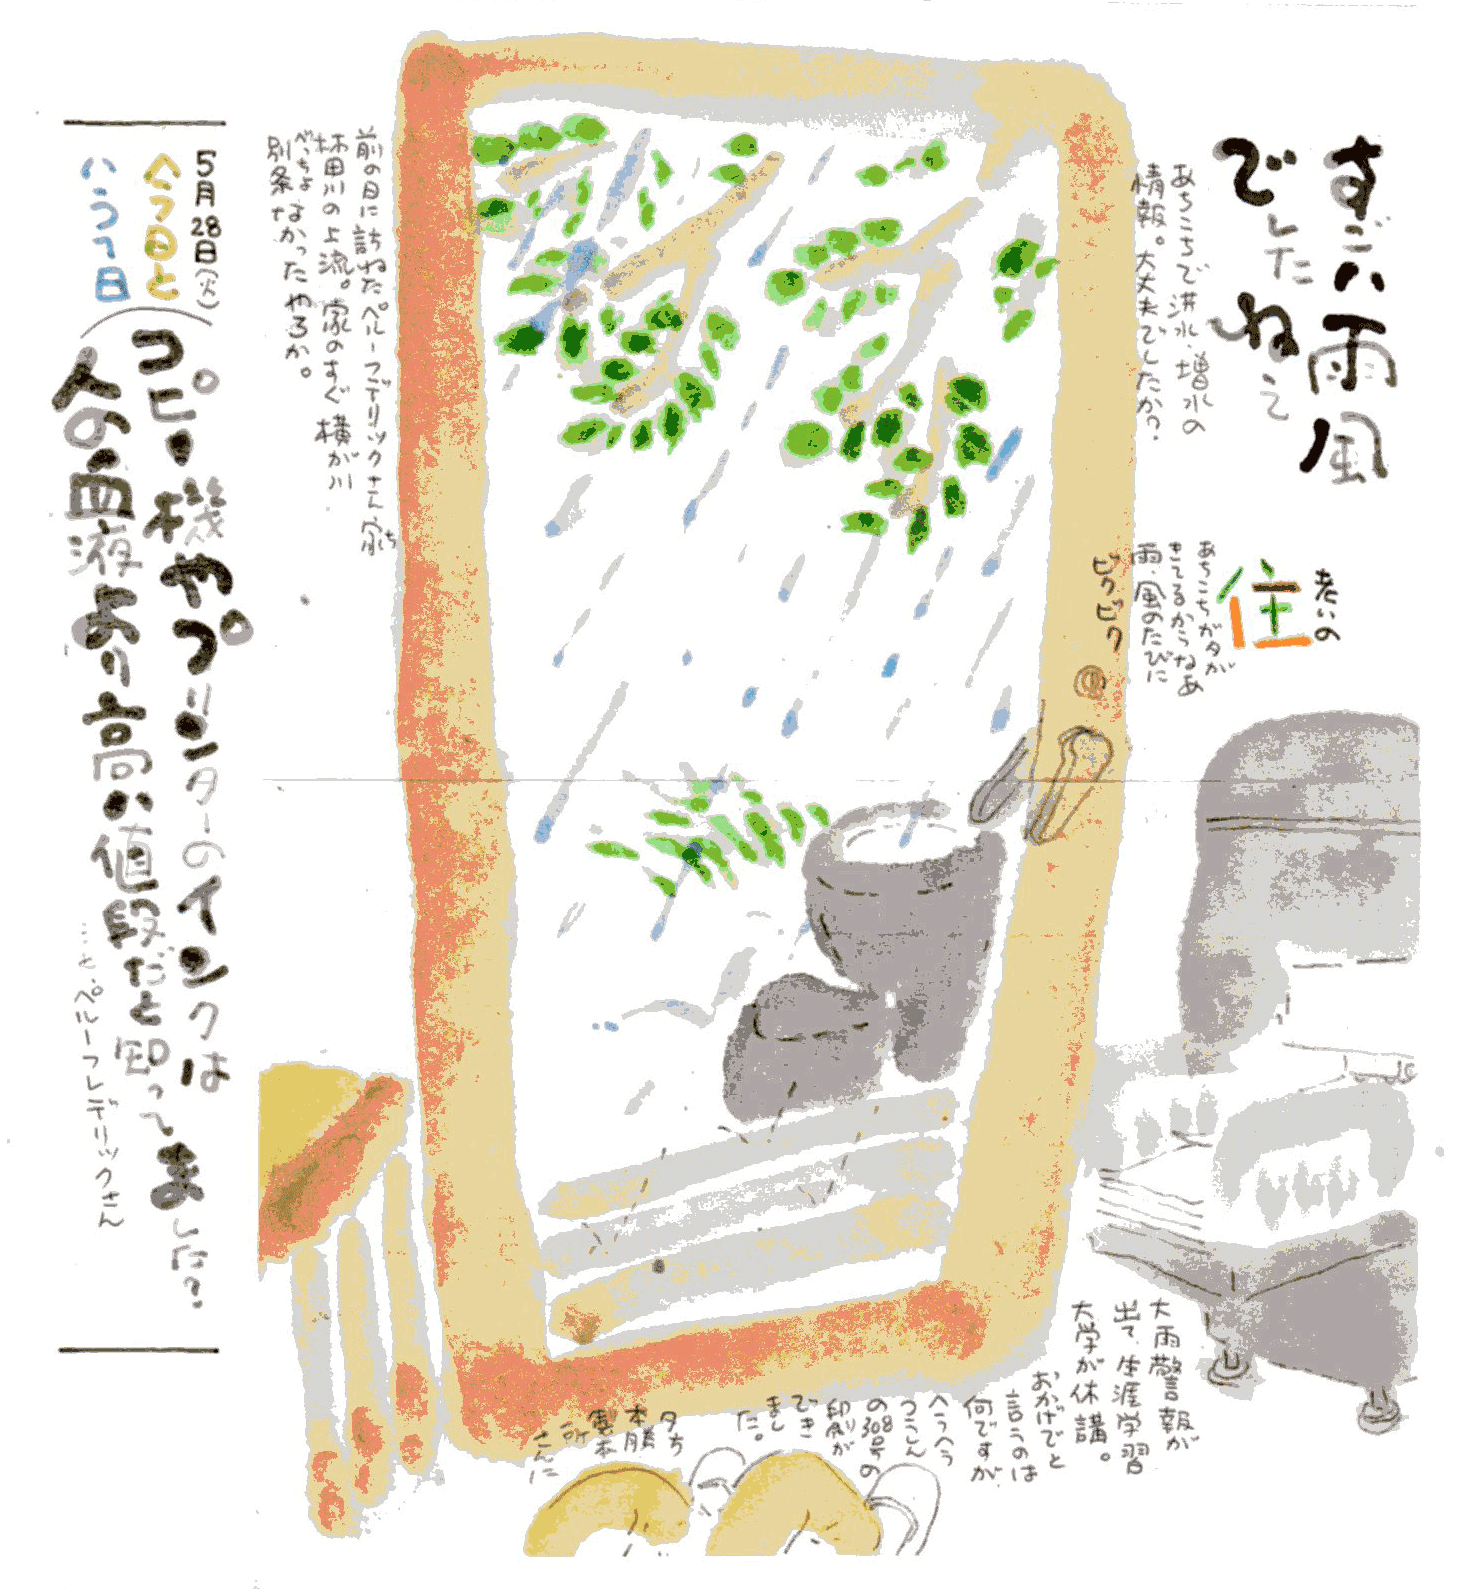 すごい雨風
でしたねえ
あちこちで洪水、増水の
情報。大丈夫でしたか？
老いの
住
あちこちガタが
きてるからなあ
雨、風のたびに
ビクビク
大雨警報が
出て、生涯学習
大学が休講。
おかげでと
言うのは
何ですが
へうへう
つうしん
の308号の
印刷が
でき
まし
た。
夕ち
本勝
製本
所
さんに
前の日に訪ねたペルーフデリックさん家
林田川の上流。家のすぐ横が川
べちょなかったやろか。
別条
5月28日(火)
へうへう日と
コピー機やプリンターのインクは
人の血液より高い値段だと知ってました？
…と、ペルーフレデリックさん